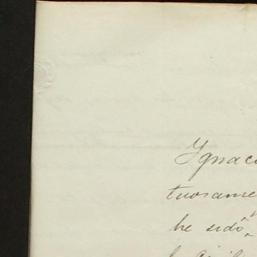 Ygnac
tuosame
he sido,